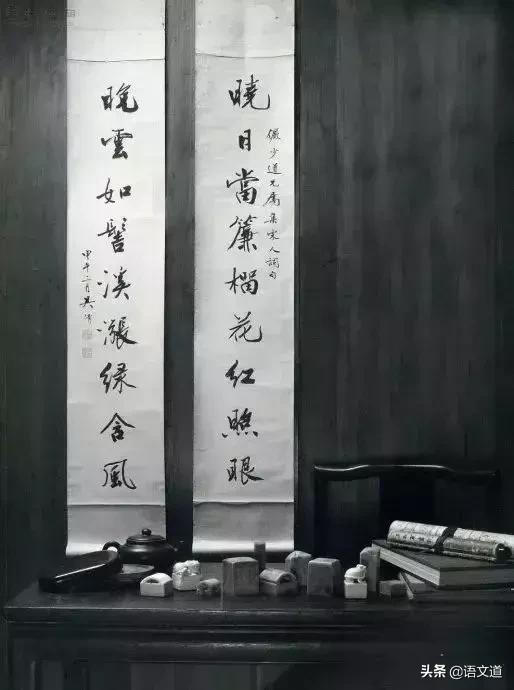 曉日當簾榴花紅照眼
儼少道兄屬集宋人詞句
晚雲如髻溪漲綠含風
甲午二月吳倩
头条 @语文道